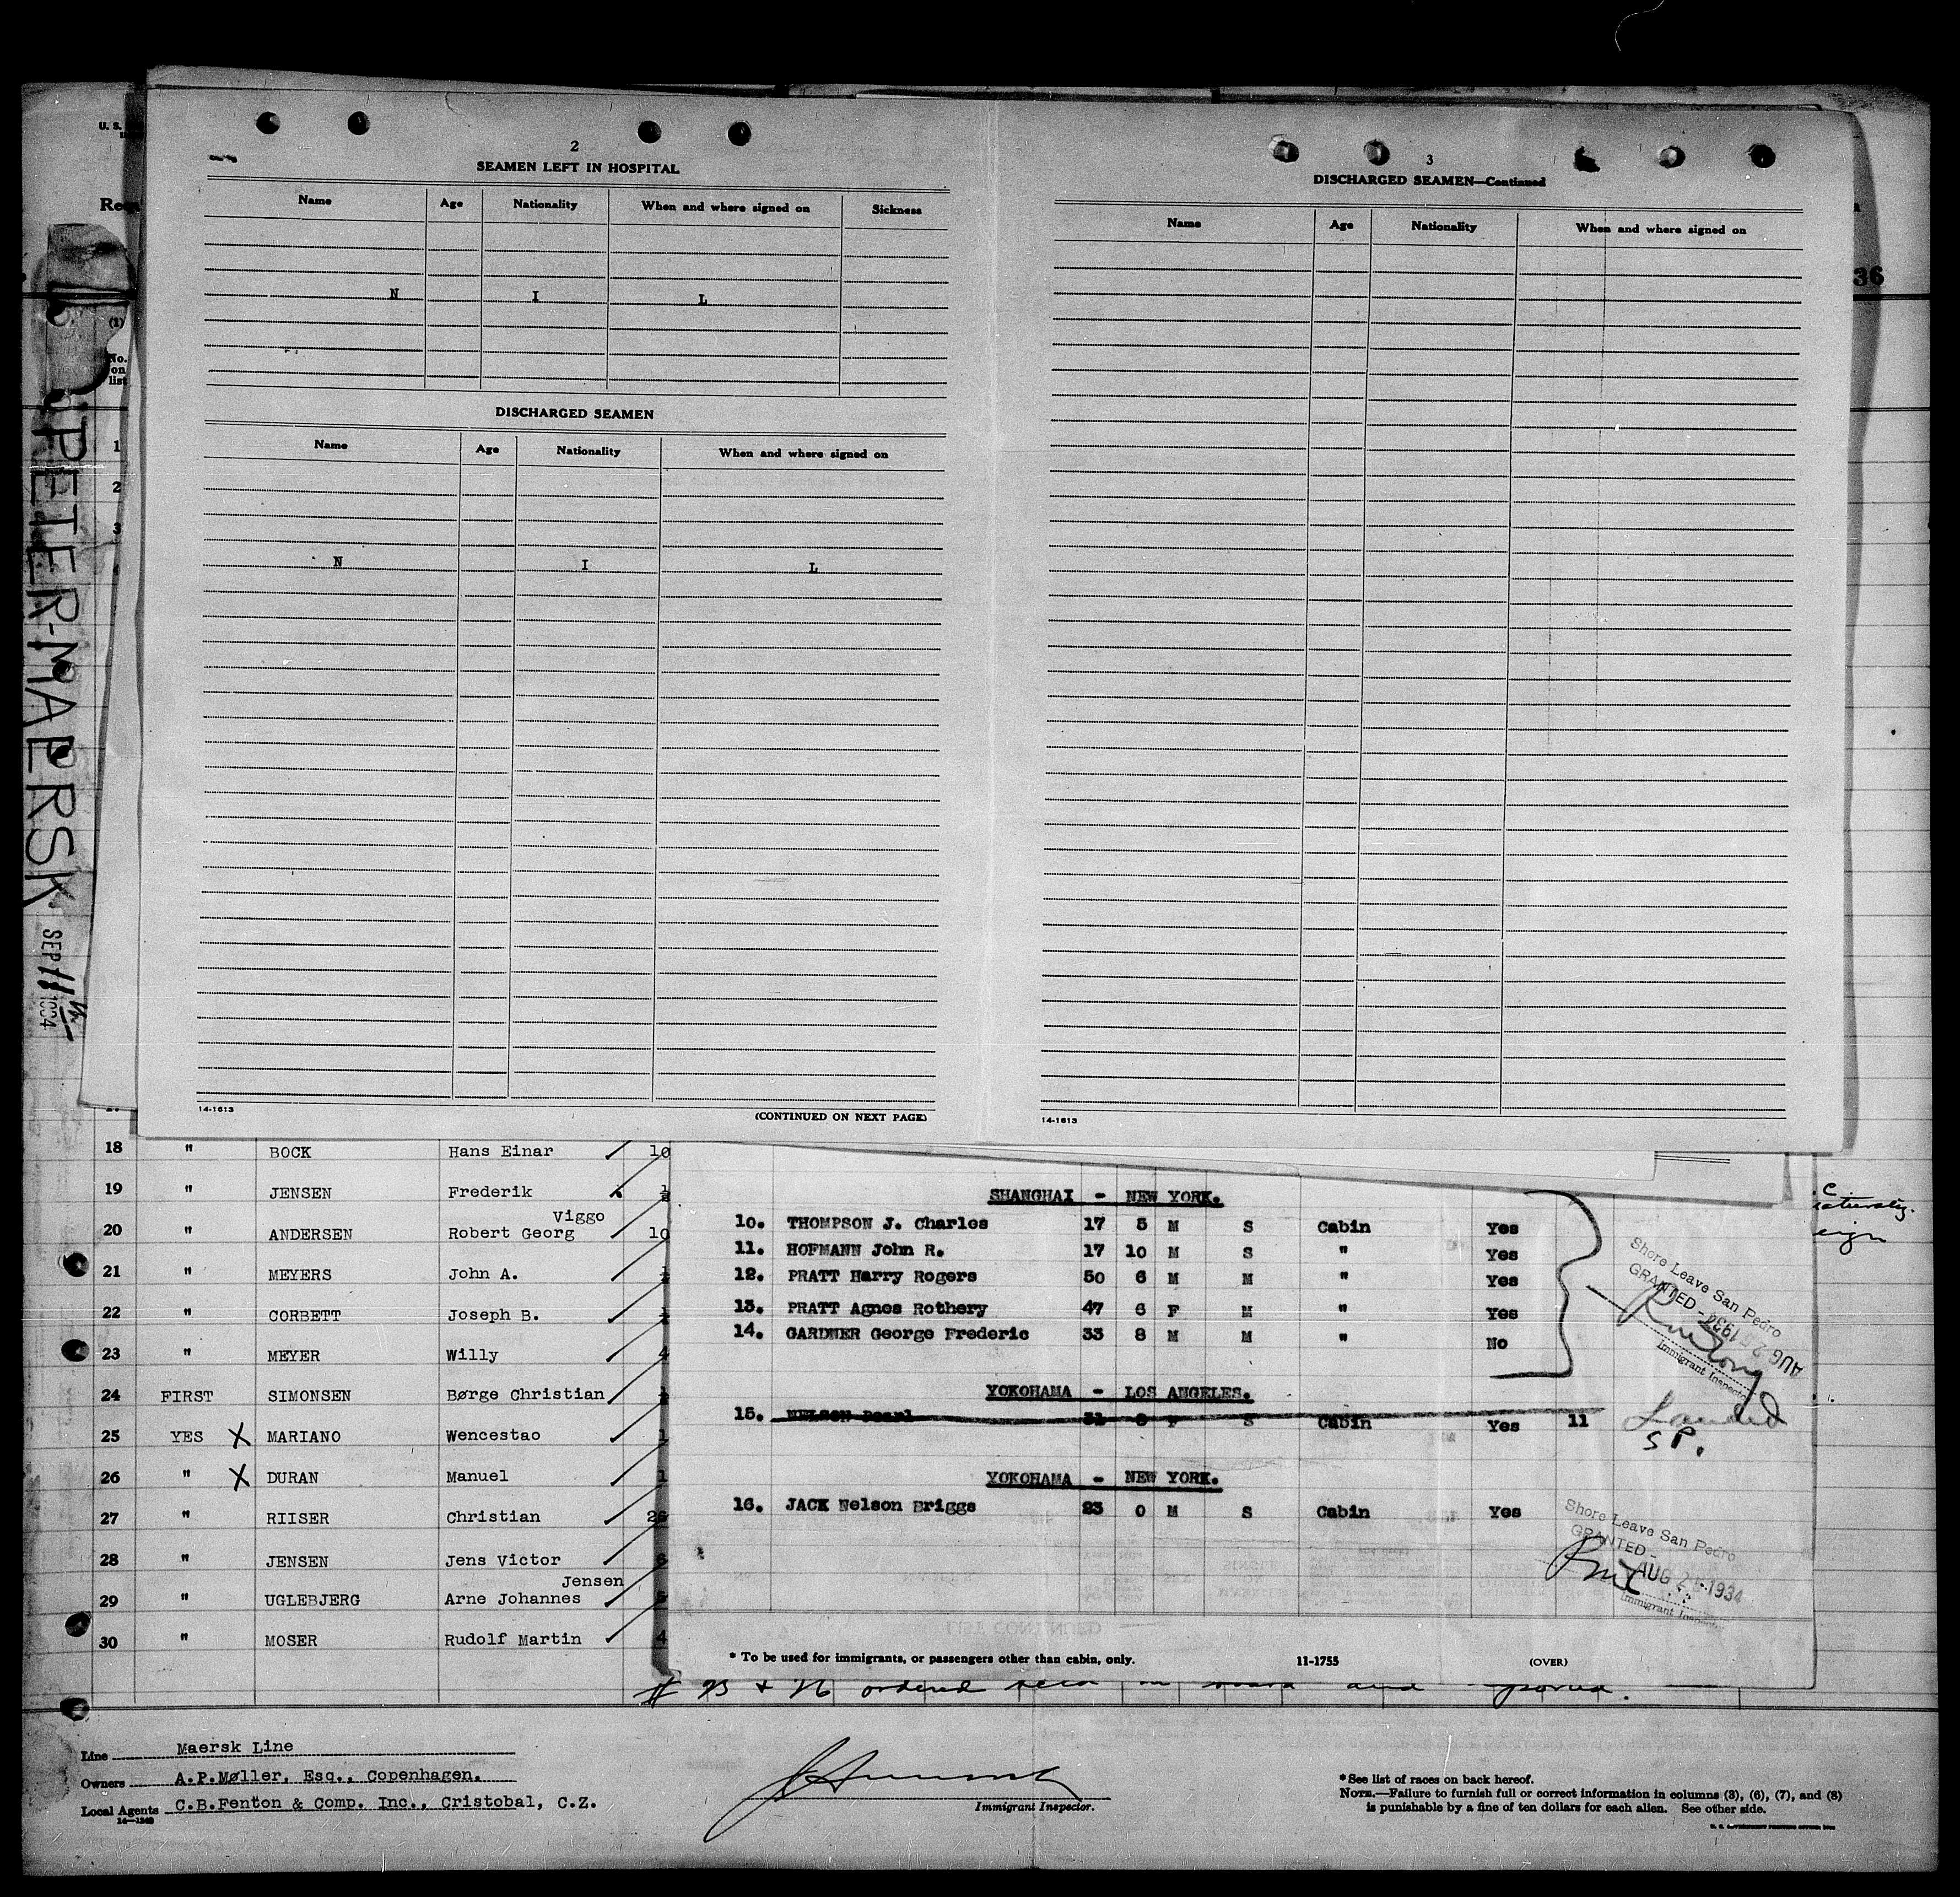 2
SEAMEN LEFT IN HOSPITAL
Name Age Nationality When and where signed on Sickness
N I L
DISCHARGED SEAMEN
Name Age Nationality When and where signed on
N I L
14-1613 (CONTINUED ON NEXT PAGE)
3
DISCHARGED SEAMEN—Continued
Name Age Nationality When and where signed on
14-1613
U. S.
36
(1)
No. on list
1
2
3
PETER-MAERSK
SEP 11 1934
18 " BOCK Hans Einar 10
19 " JENSEN Frederik
Viggo
20 " ANDERSEN Robert Georg 10
21 " MEYERS John A.
22 " CORBETT Joseph B.
23 " MEYER Willy 4
24 FIRST SIMONSEN Børge Christian
25 YES X MARIANO Wencestao 1
26 " X DURAN Manuel 1
27 " RIISER Christian
28 " JENSEN Jens Victor 6
Jensen
29 " UGLEBJERG Arne Johannes 5
30 " MOSER Rudolf Martin 4
SHANGHAI - NEW YORK.
10. THOMPSON J. Charles 17 5 M S Cabin Yes
11. HOFMANN John R. 17 10 M S " Yes
12. PRATT Harry Rogers 50 6 M M " Yes
13. PRATT Agnes Rothery 47 6 F M " Yes
14. GARDNER George Frederic 33 8 M M " No
Shore Leave San Pedro
GRANTED -
AUG 2 1934
Immigrant Inspector
YOKOHAMA - LOS ANGELES.
15. NELSON Pearl 31 F S Cabin Yes 11
Landed
S P.
YOKOHAMA - NEW YORK.
16. JACK Nelson Briggs 23 0 M S Cabin Yes
Shore Leave San Pedro
GRANTED -
AUG 2 1934
Immigrant Inspector
* To be used for immigrants, or passengers other than cabin, only. 11-1755 (OVER)
# 25 + 26 ordered
Line Maersk Line
Owners A.P.Møller, Esq., Copenhagen.
Local Agents C.B.Fenton & Comp. Inc., Cristobal, C.Z.
14-1240
Immigrant Inspector.
* See list of races on back hereof.
NOTE.—Failure to furnish full or correct information in columns (3), (6), (7), and (8)
is punishable by a fine of ten dollars for each alien. See other side.